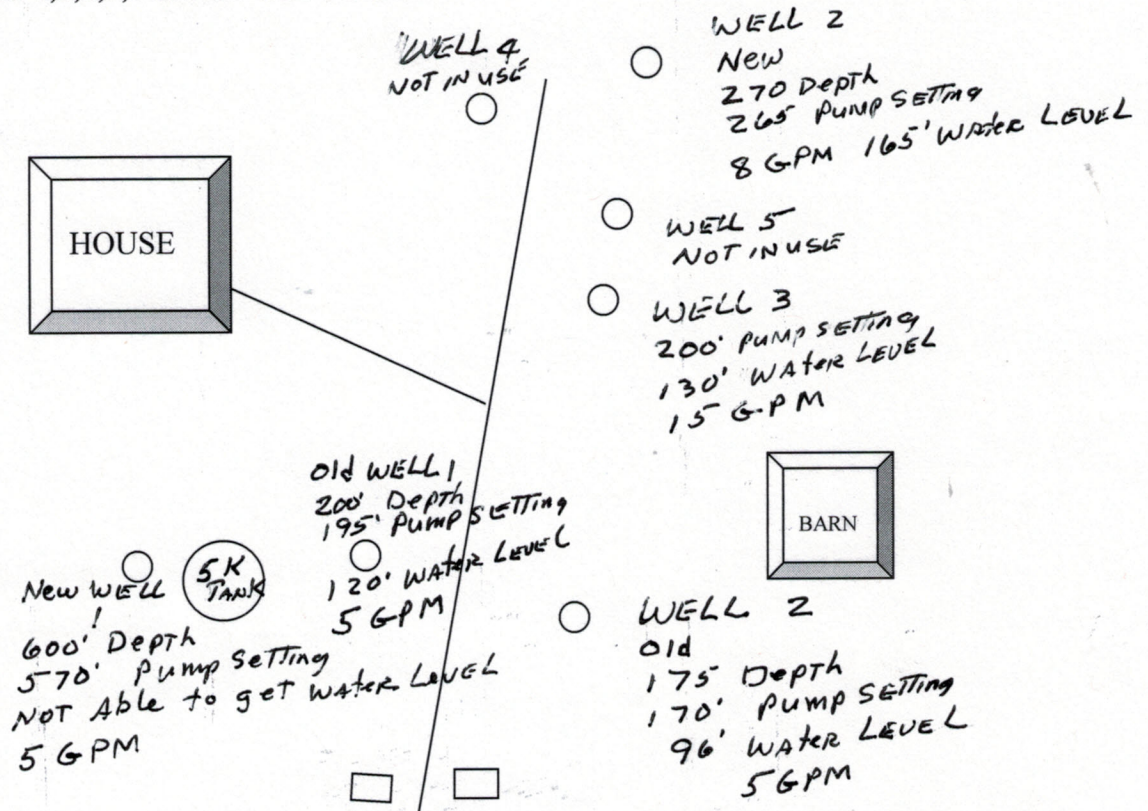 WELL 4
NOT IN USE
WELL 2
New
270 Depth
265 Pump Setting
8 GPM 165' Water Level
HOUSE
WELL 5
NOT IN USE
WELL 3
200' Pump Setting
130' Water Level
15 GPM
Old WELL 1
200' Depth
195' Pump Setting
120' Water Level
5 GPM
BARN
5K
TANK
New Well
1
600' Depth
570' Pump Setting
Not Able to get Water Level
5 GPM
WELL 2
Old
175 Depth
170' Pump Setting
96' Water Level
5 GPM